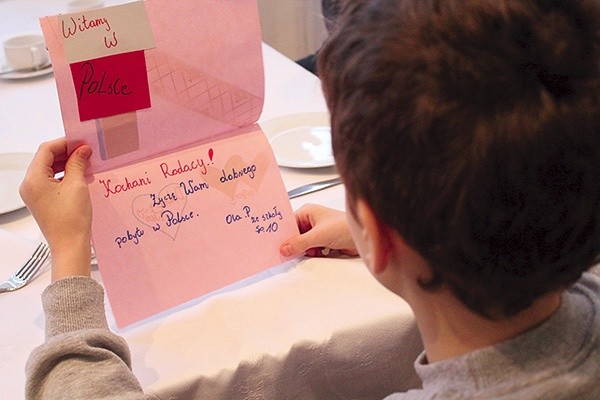 Witamy
w
Polsce
Kochani Rodacy!
Życzę Wam dobrego
pobytu w Polsce.
Ola P. ze szkoły
Sp. 10